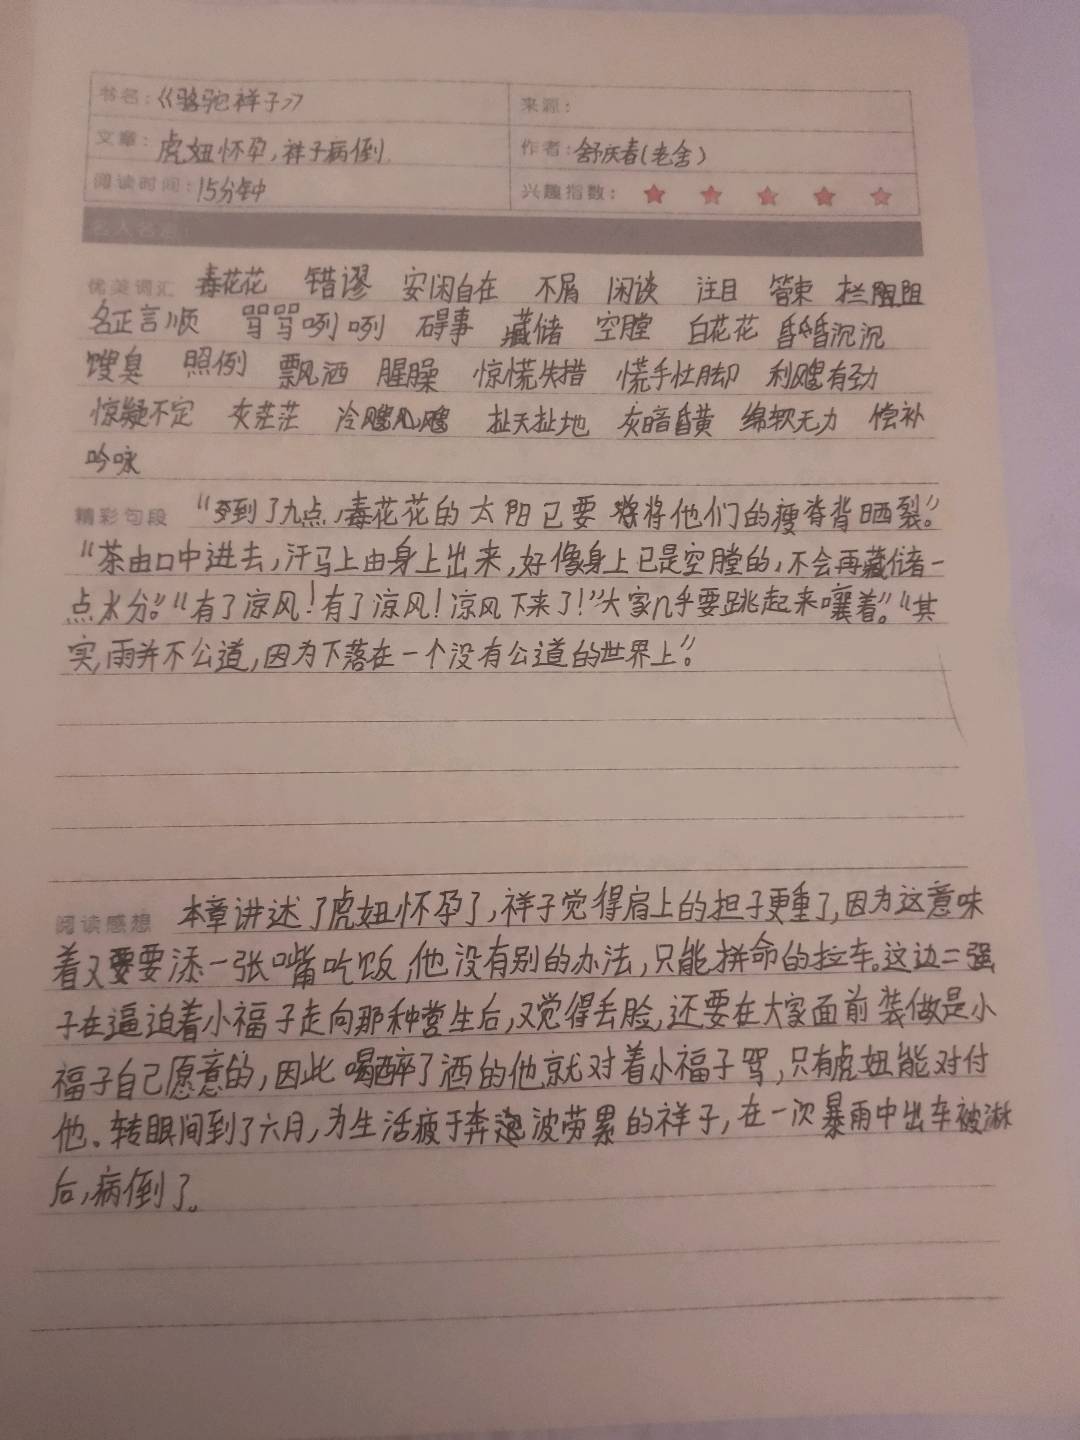 书名：《骆驼祥子》 来源：
文章：虎妞怀孕，祥子病倒. 作者：舒庆春（老舍）
阅读时间：15分钟 兴趣指数：
名人名言：
优美词汇 毒花花 错谬 安闲自在 不屑 闲谈 注目 管束 拦阻
名正言顺 骂骂咧咧 碍事 藏储 空膛 白花花 昏昏沉沉
馊臭 照例 飘洒 腥臊 惊慌失措 慌手忙脚 利飕有劲
惊疑不定 灰茫茫 冷飕飕 扯天扯地 灰暗昏黄 绵软无力 偿补
吟咏
精彩句段 “到了九点，毒花花的太阳已要将他们的瘦脊背晒裂。”
“茶由口中进去，汗马上由身上出来，好像身上已是空膛的，不会再藏储一
点水分。”“有了凉风！有了凉风！凉风下来了！”大家几乎要跳起来嚷着。”“其
实，雨并不公道，因为下落在一个没有公道的世界上”。
阅读感想 本章讲述了虎妞怀孕了，祥子觉得肩上的担子更重了，因为这意味
着又要添一张嘴吃饭，他没有别的办法，只能拼命的拉车。这边二强
子在逼迫着小福子走向那种营生后，又觉得丢脸，还要在大家面前装做是小
福子自己愿意的，因此喝醉了酒的他就对着小福子骂，只有虎妞能对付
他、转眼间到了六月，为生活疲于奔波劳累的祥子，在一次暴雨中出车被淋
后，病倒了。